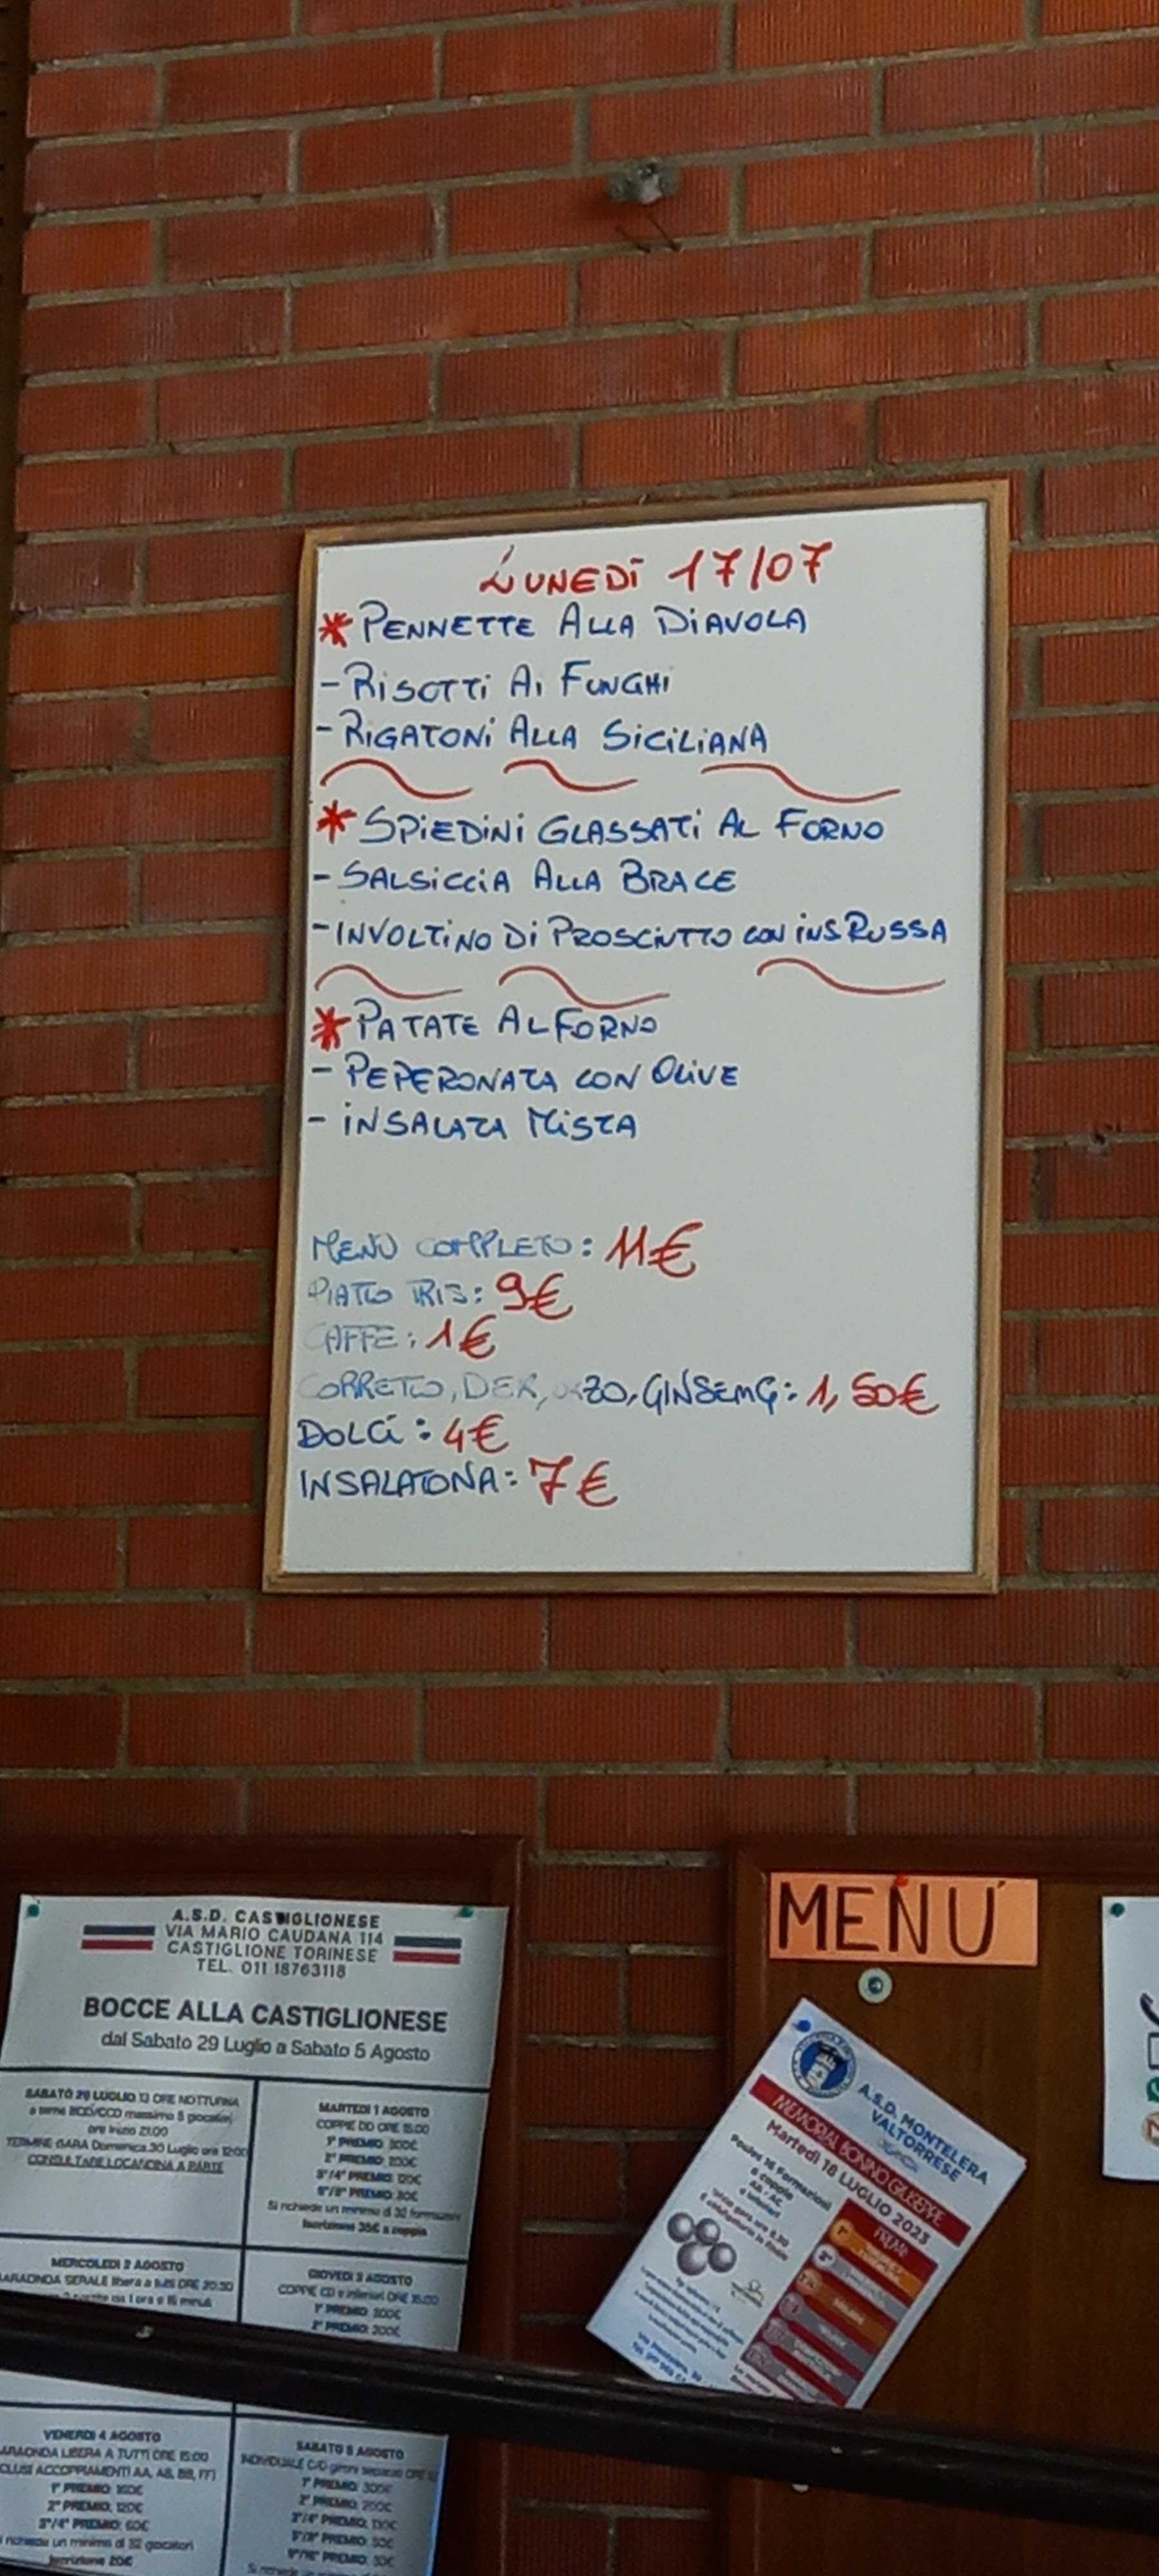 LUNEDÌ 17/07
* PENNETTE ALLA DIAVOLA
- RISOTTI AI FUNGHI
- RIGATONI ALLA SICILIANA
* SPIEDINI GLASSATI AL FORNO
- SALSICCIA ALLA BRACE
- INVOLTINO DI PROSCIUTTO CON INS RUSSA
* PATATE AL FORNO
- PEPERONATA CON OLIVE
- INSALATA MISTA
MENU COMPLETO: 11€
PIATTO TRIS: 9€
CAFFE: 1€
CORRETTO, DEK, ORZO, GINSEMG: 1,50€
DOLCI: 4€
INSALATONA: 7€
A.S.D. CASTIGLIONESE
VIA MARIO CAUDANA 114
CASTIGLIONE TORINESE
TEL. 011 18763118
BOCCE ALLA CASTIGLIONESE
dal Sabato 29 Luglio a Sabato 5 Agosto
SABATO 29 LUGLIO 13 ORE NOTTURNA
massimo 5 giocatori
ore inizio 21.00
TERMINE GARA Domenica 30 Luglio ore 12:00
CONSULTARE LOCANDINA A PARTE
MARTEDI 1 AGOSTO
COPPIE DD ORE 15.00
1° PREMIO: 300€
2° PREMIO: 200€
3°/4° PREMIO: 120€
5°/8° PREMIO: 80€
Si richiede un minimo di 32 formazioni
Iscrizione 35€ a coppia
MERCOLEDI 2 AGOSTO
SERALE libera a tutti ORE 20:30
GIOVEDI 3 AGOSTO
COPPIE CD e inferiori ORE 15:00
1° PREMIO: 300€
2° PREMIO: 200€
VENERDI 4 AGOSTO
LIBERA A TUTTI ORE 15:00
ACCOPPIAMENTI AA, AB, BB, FF)
1° PREMIO: 160€
2° PREMIO: 120€
3°/4° PREMIO: 60€
richiede un minimo di 32 giocatori
Iscrizione 20€
SABATO 5 AGOSTO
INDIVIDUALE C/D gironi
1° PREMIO: 300€
2° PREMIO: 200€
3°/4° PREMIO:
5°/8° PREMIO:
Si richiede un
MENU'
A.S.D. MONTELERA
VALTORRESE
MEMORIAL BONINO GIUSEPPE
Martedì 18 LUGLIO 2023
Poule 16 Formazioni
a coppie
PREMI